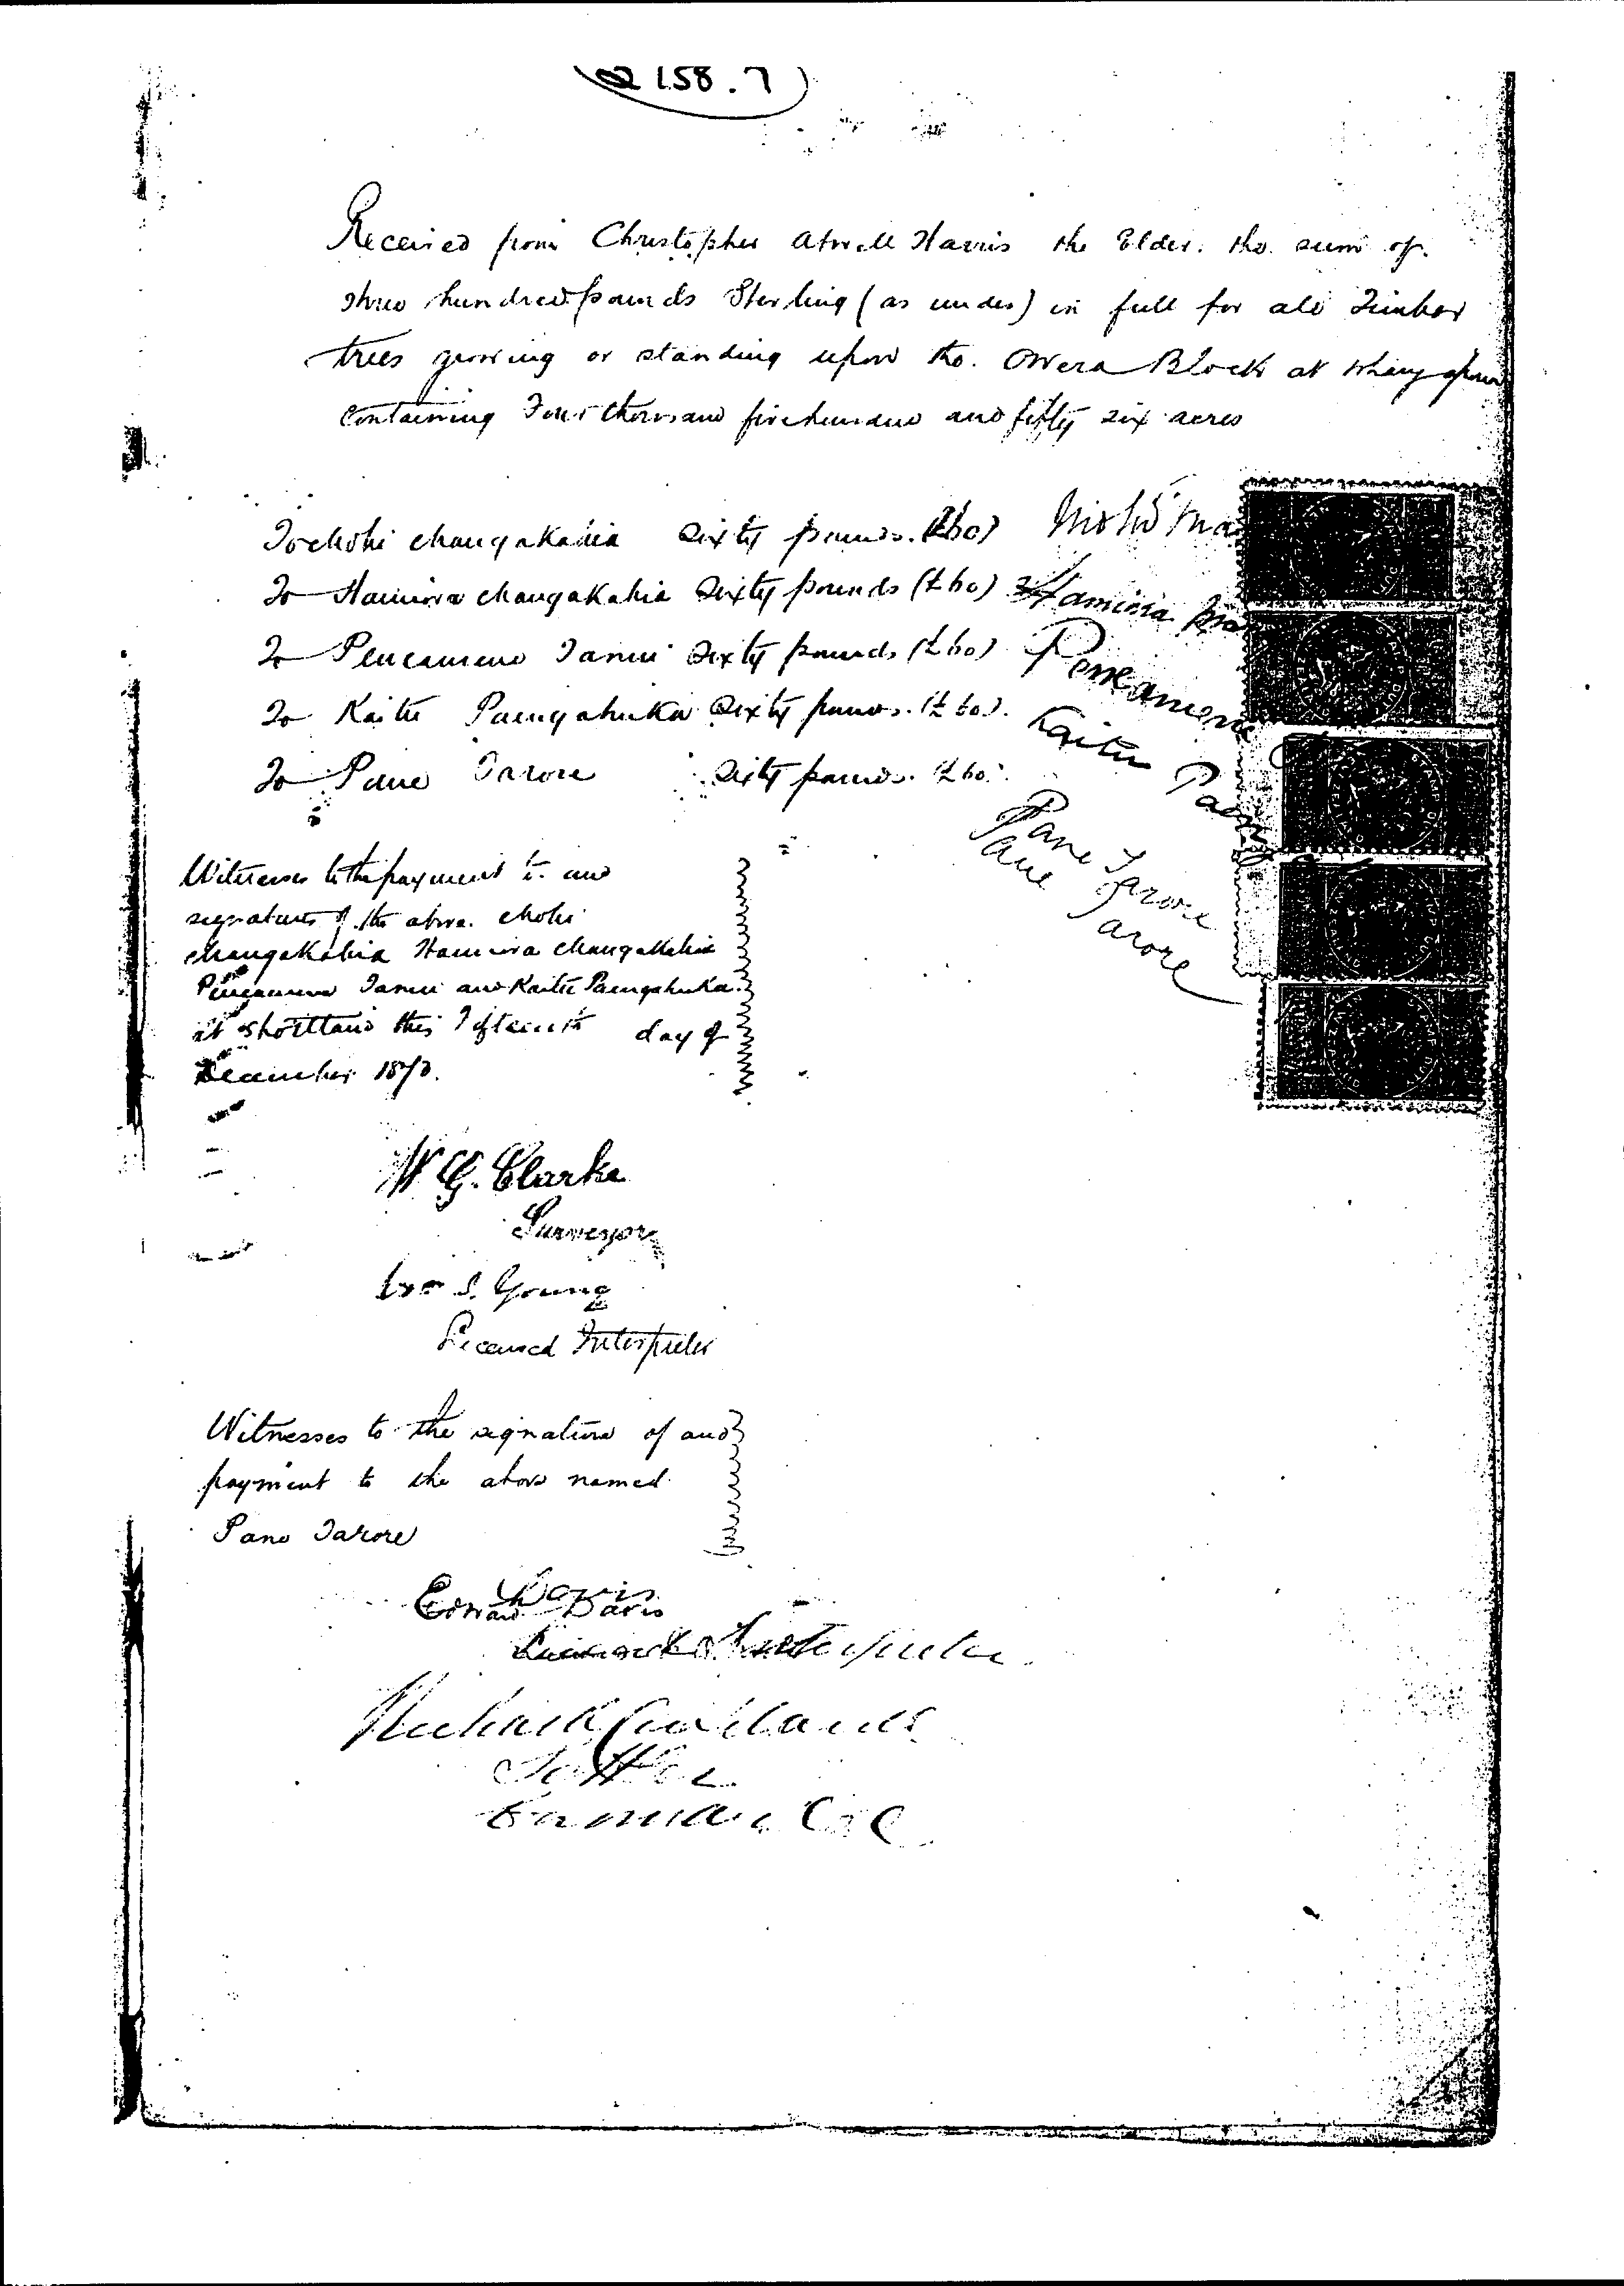 2158.7
Received from Christopher Atwell Harris the Elder. the sum of
three hundred pounds Sterling (as under) in full for all Timber
trees growing or standing upon the Owera Block at Whangapoua
Containing Four thousand five hundred and fifty six acres
To Mohi Mangakahia Sixty pounds. (£60) Mohi Ma
To Hamiora Mangakahia Sixty pounds (£60) Hamiora
To Peneamene Tanui Sixty pounds (£60) Peneamene
To Kaitu Paengahuka Sixty pounds. (£60). Kaitu Paeng
To Pane Tarore Sixty pounds. (£60.
Pane Tarore
Pane Tarore
Witnesses to the payment to and
signatures of the above. Mohi
Mangakahia Hamiora Mangakahia
Peneamene Tanui and Kaitu Paengahuka.
at Shortland this Fifteenth day of
December 187
W G. Clarke
Surveyor
S. Young
Licensed Interpreter
Witnesses to the signature of and
payment to the above named
Pane Tarore
Davis
Edward Davis
Licensed Interpreter